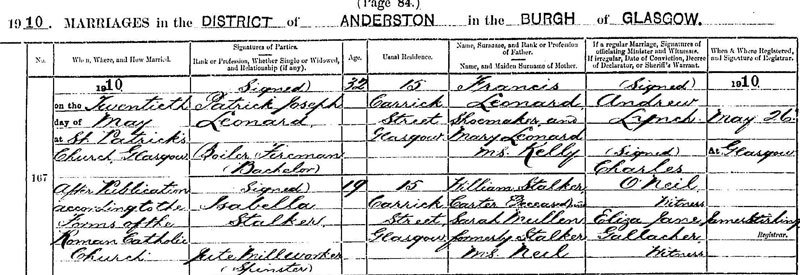 (Page 84.)
1910. MARRIAGES in the DISTRICT of ANDERSTON in the BURGH of GLASGOW.
No.
When, Where, and How Married.
Signatures of Parties.
Rank or Profession, Whether Single or Widowed, and Relationship (if any).
Age.
Usual Residence.
Name, Surname, and Rank or Profession of Father.
Name, and Maiden Surname of Mother.
If a regular Marriage, Signatures of officiating Minister and Witnesses.
If irregular, Date of Conviction, Decree of Declarator, or Sheriff's Warrant.
When & Where Registered, and Signature of Registrar.
167
1910
on the Twentieth
day of May
at St. Patrick's
Church, Glasgow
After Publication
according to the
Forms of the
Roman Catholic
Church
(Signed)
Patrick Joseph
Leonard
Boiler Fireman
(Bachelor)
(Signed)
Isabella
Stalker
Jute Millworker
(Spinster)
32
19
15
Carrick
Street
Glasgow
15
Carrick
Street
Glasgow
Francis
Leonard
Shoemaker, and
Mary Leonard
m.s. Kelly
William Stalker
Carter (Deceased) and
Sarah Mullen
formerly Stalker
m.s. Neil
(Signed)
Andrew
Lynch
(Signed)
Charles
O'Neil
Witness
Eliza Jane
Gallacher
Witness
1910.
May 26th
At Glasgow
James Stirling
Registrar.